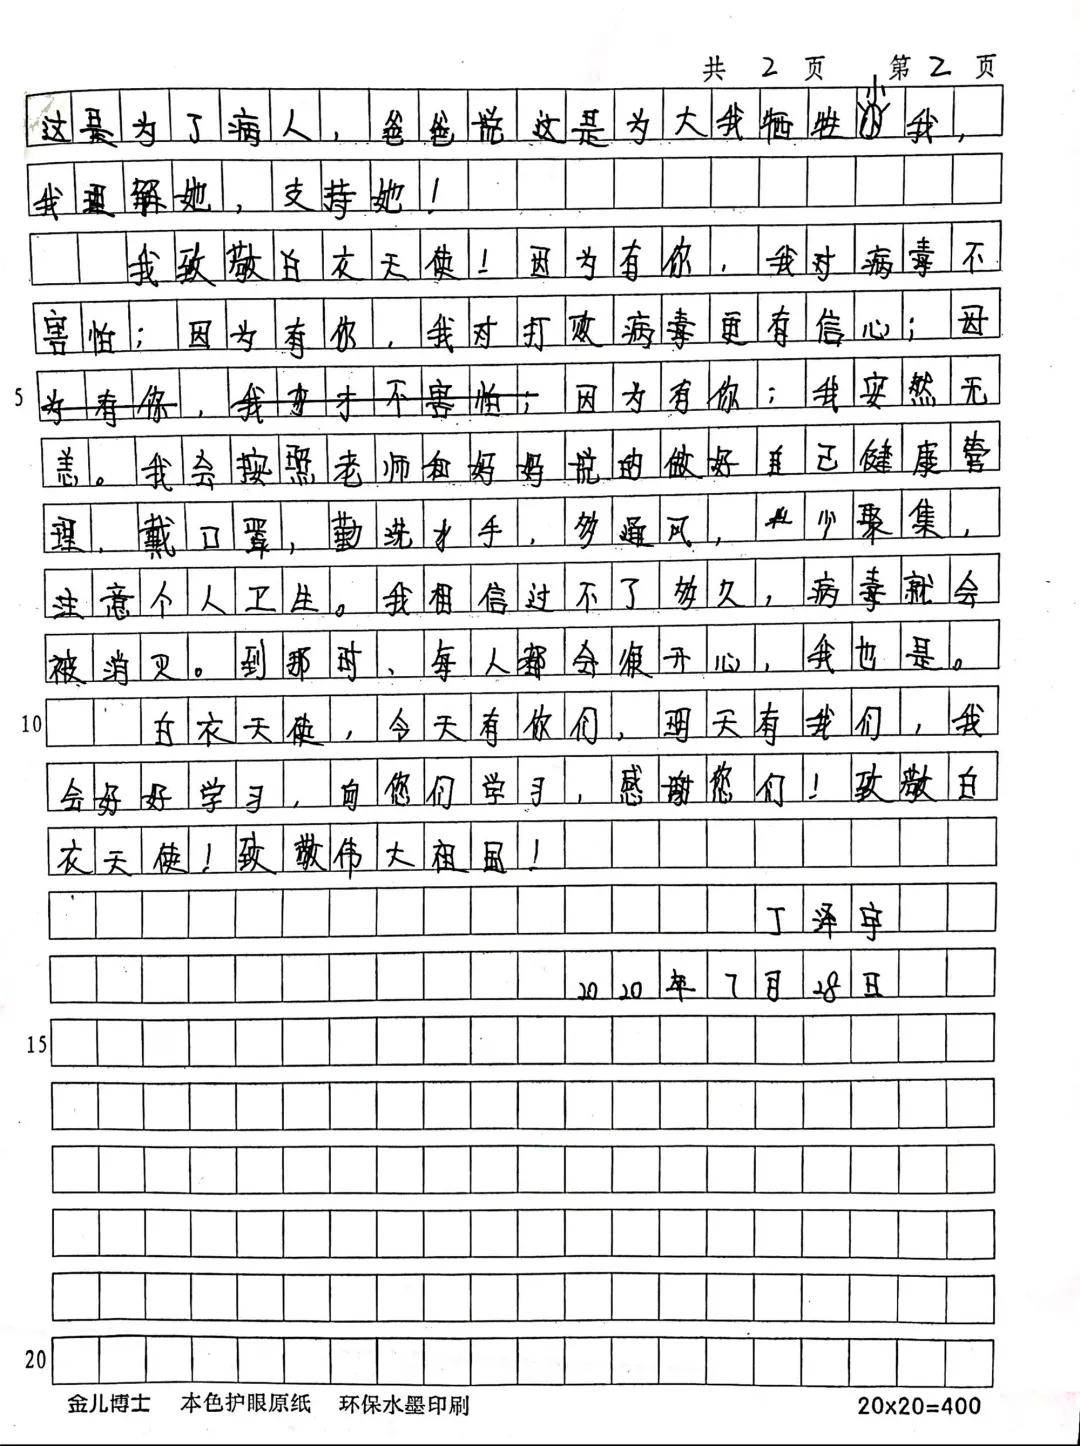 共 2 页 第 2 页
这是为了病人，爸爸说这是为大我牺牲小我，
我理解她，支持她！
我致敬白衣天使！因为有你，我对病毒不
害怕；因为有你，我对打败病毒更有信心；因
5 为有你，我才不害怕；因为有你；我安然无
恙。我会按照老师和妈妈说的做好自己健康管
理，戴口罩，勤洗手，多通风，少聚集，
注意个人卫生。我相信过不了多久，病毒就会
被消灭。到那时、每人都会很开心，我也是。
10 白衣天使，今天有你们，明天有我们，我
会好好学习，向您们学习，感谢您们！致敬白
衣天使！致敬伟大祖国！
丁泽宇
2020年7月28日
15
20
金儿博士 本色护眼原纸 环保水墨印刷 20x20=400